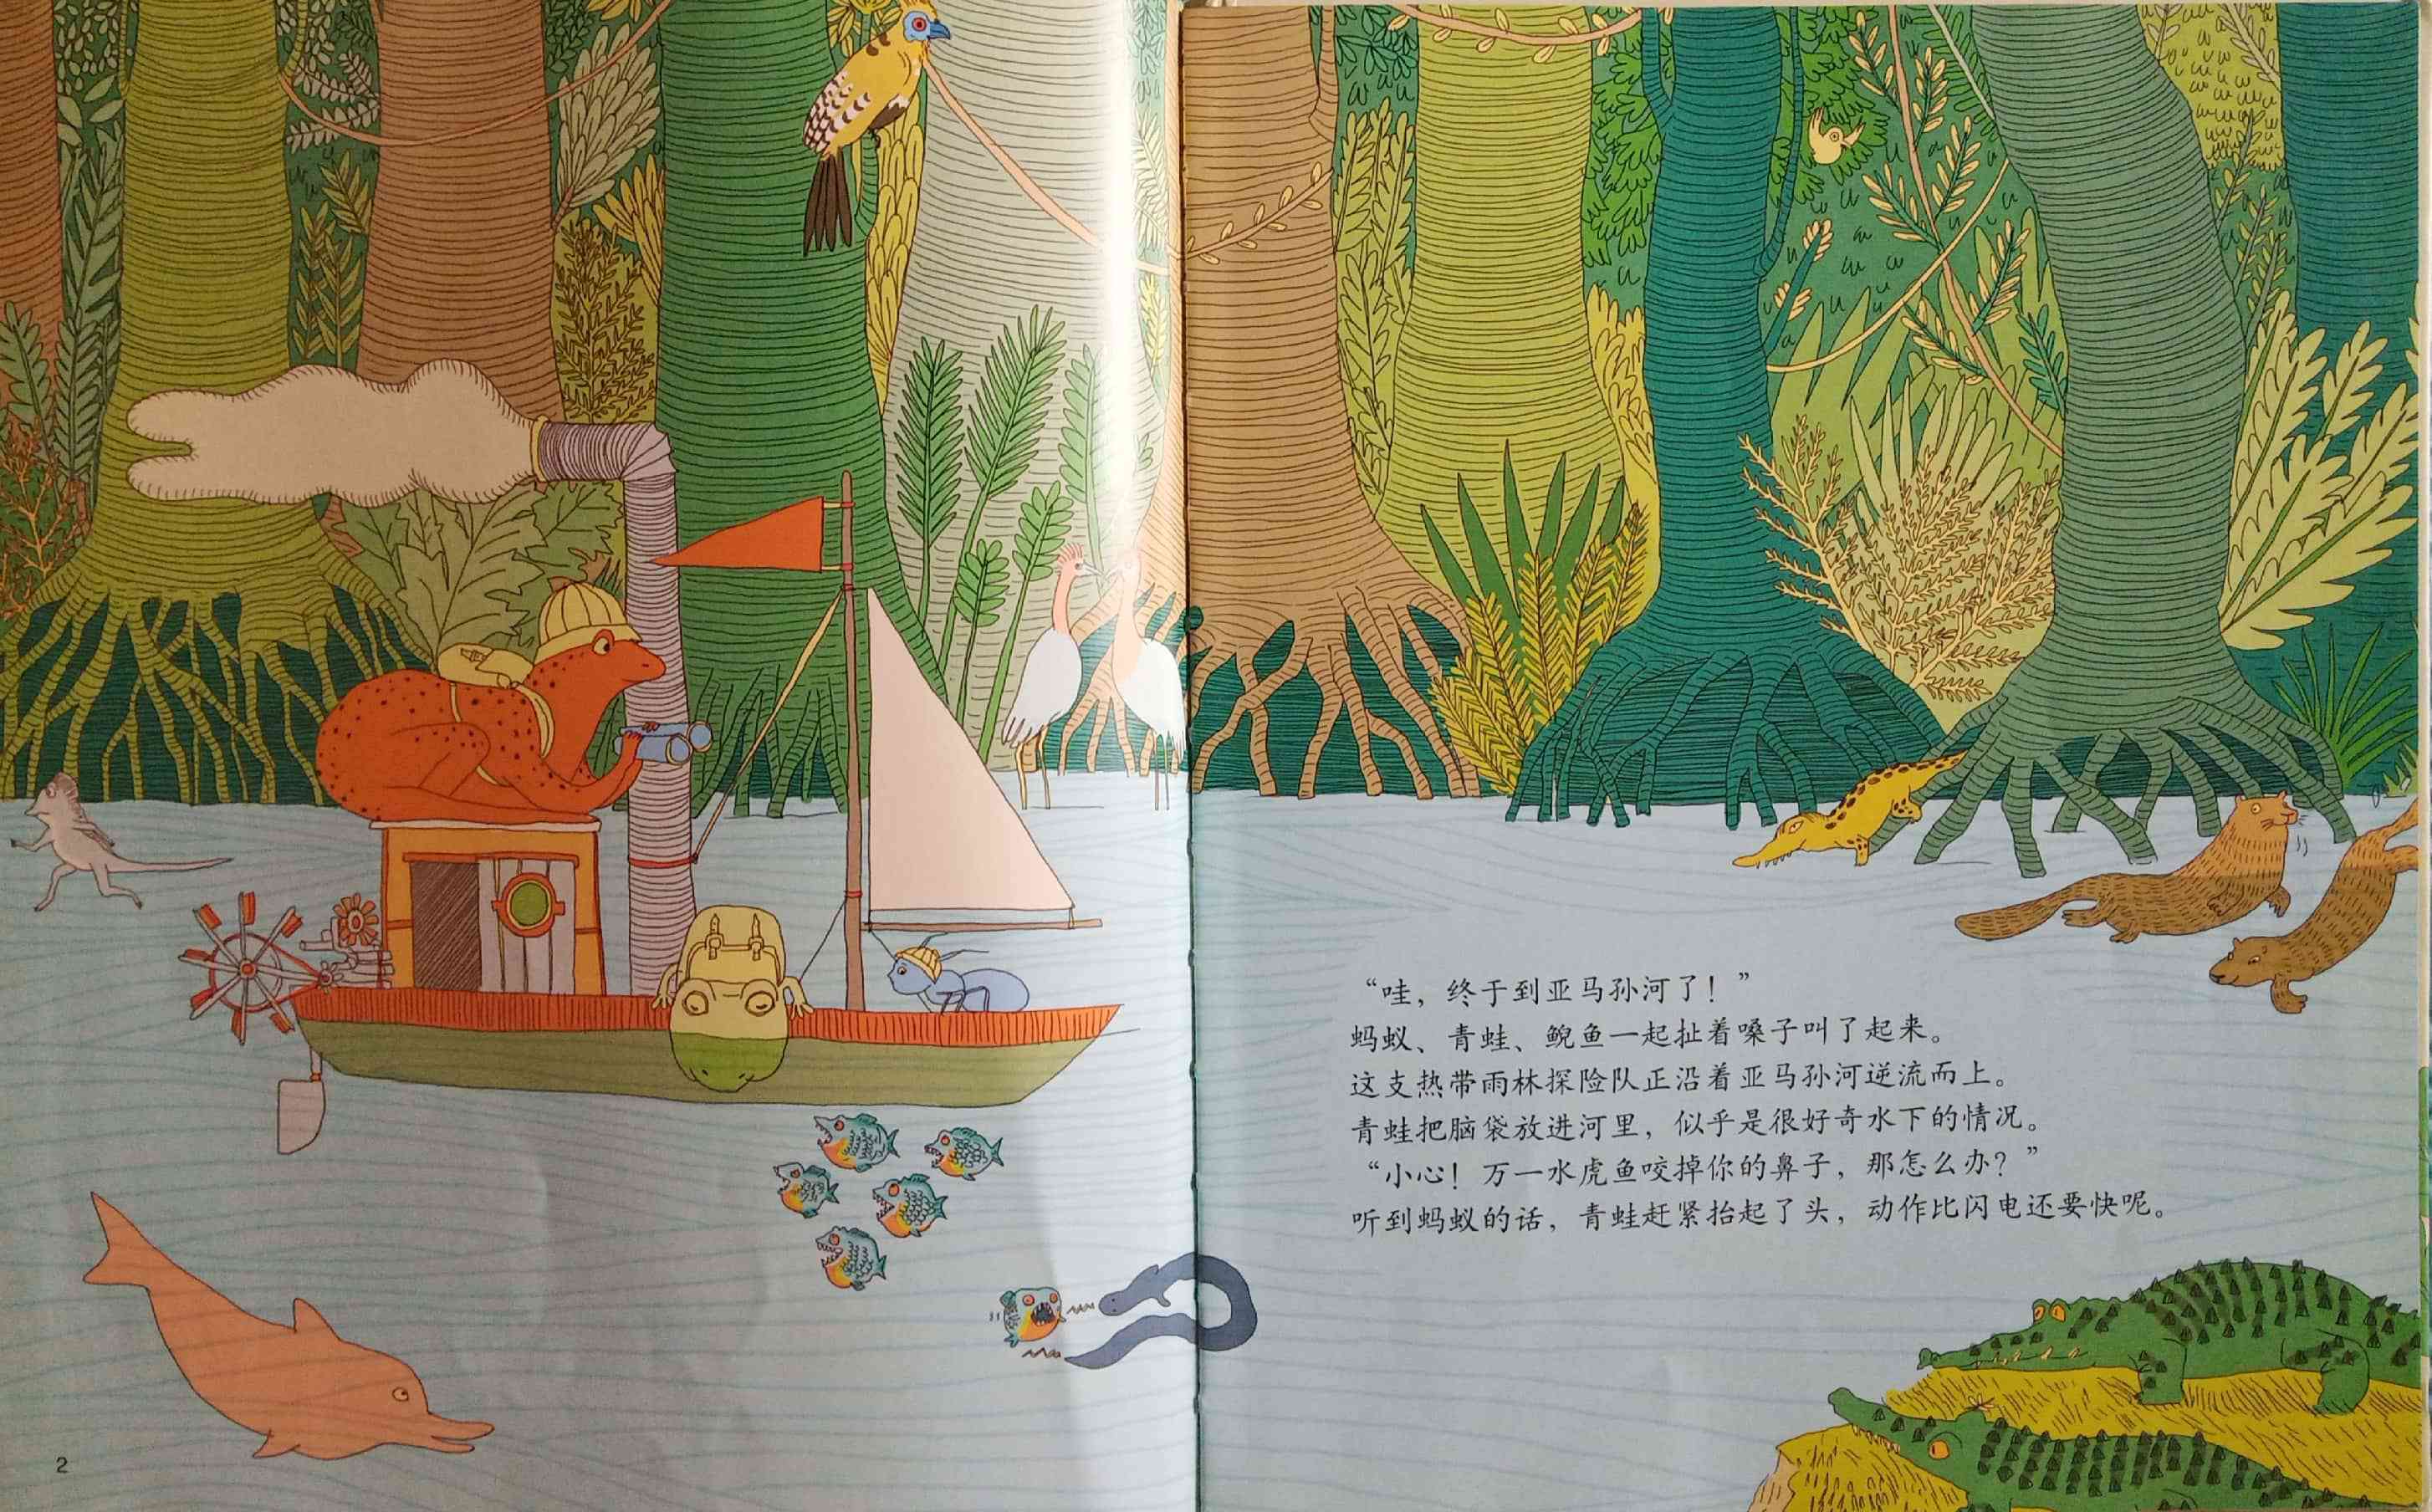 “哇，终于到亚马孙河了！”
蚂蚁、青蛙、鲵鱼一起扯着嗓子叫了起来。
这支热带雨林探险队正沿着亚马孙河逆流而上。
青蛙把脑袋放进河里，似乎是很好奇水下的情况。
“小心！万一水虎鱼咬掉你的鼻子，那怎么办？”
听到蚂蚁的话，青蛙赶紧抬起了头，动作比闪电还要快呢。
2